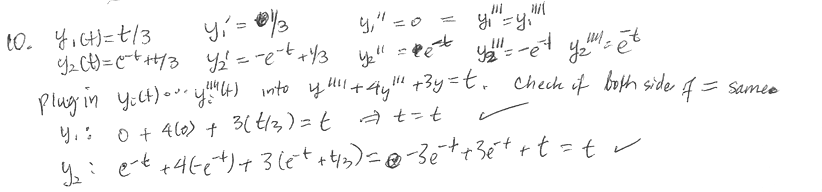 10. y₁(t)=t/3 y₁' = 1/3 y₁'' = 0 = y₁''' = y₁''''
y₂(t)=e^-t+t/3 y₂' = -e^-t+1/3 y₂'' = e^-t y₂''' = -e^-t y₂'''' = e^-t
Plug in yᵢ(t) ... yᵢ''''(t) into y'''' + 4y''' + 3y = t. Check if both side if = same.
y₁: 0 + 4(0) + 3(t/3) = t ⇒ t = t ✓
y₂: e^-t + 4(-e^-t) + 3(e^-t + t/3) = -3e^-t + 3e^-t + t = t ✓